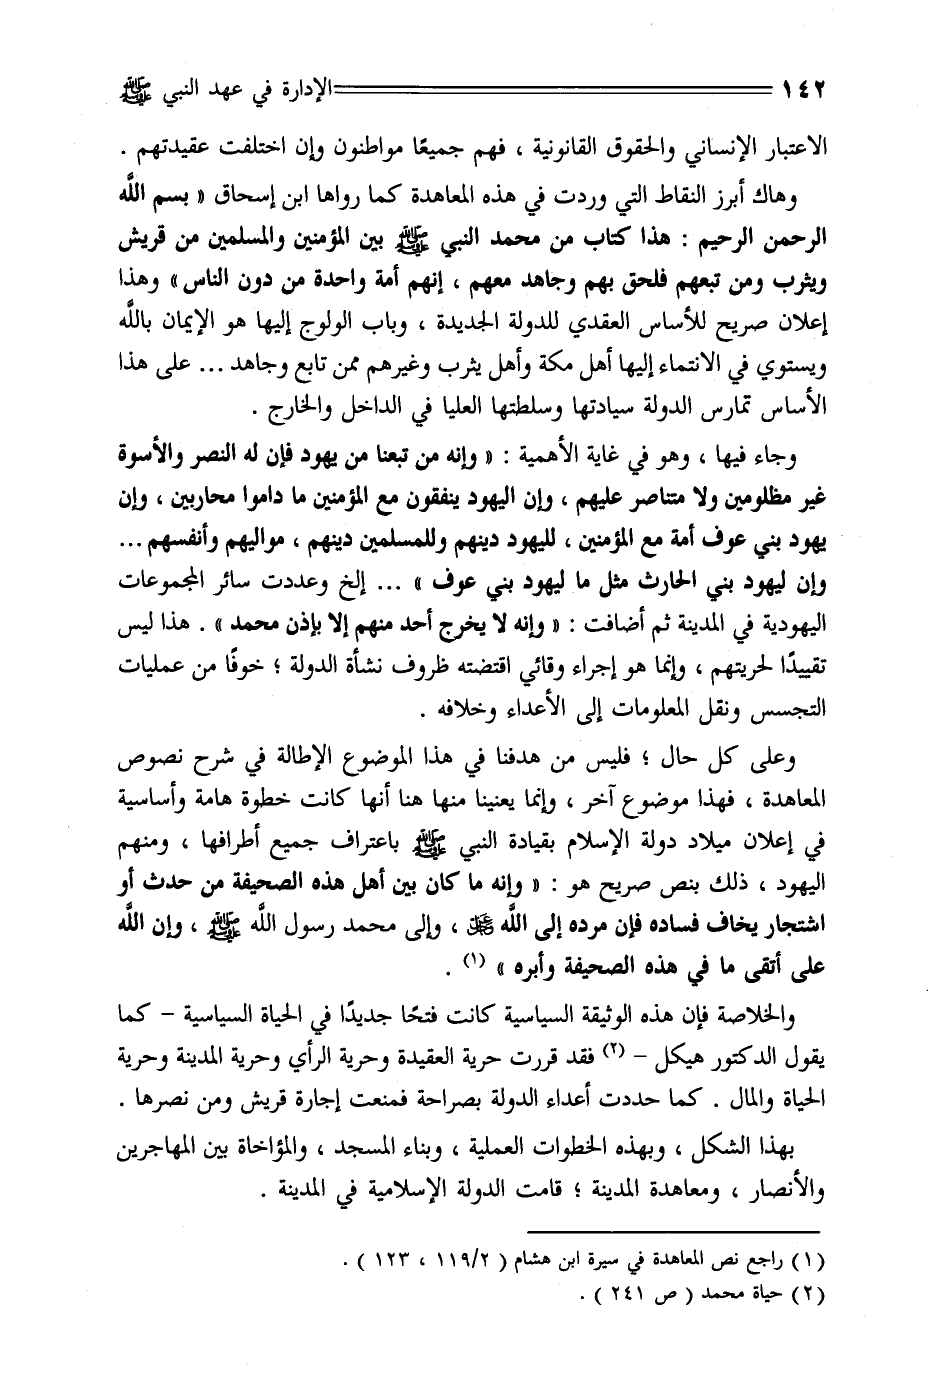 ١٤٢ الإدارة في عهد النبي ﷺ
الاعتبار الإنساني والحقوق القانونية ، فهم جميعًا مواطنون وإن اختلفت عقيدتهم .
وهاك أبرز النقاط التي وردت في هذه المعاهدة كما رواها ابن إسحاق « بسم اللَّه
الرحمن الرحيم : هذا كتاب من محمد النبي ﷺ بين المؤمنين والمسلمين من قريش
ويثرب ومن تبعهم فلحق بهم وجاهد معهم ، إنهم أمة واحدة من دون الناس » وهذا
إعلان صريح للأساس العقدي للدولة الجديدة ، وباب الولوج إليها هو الإيمان باللَّه
ويستوي في الانتماء إليها أهل مكة وأهل يثرب وغيرهم ممن تابع وجاهد ... على هذا
الأساس تمارس الدولة سيادتها وسلطتها العليا في الداخل والخارج .
وجاء فيها ، وهو في غاية الأهمية : « وإنه من تبعنا من يهود فإن له النصر والأسوة
غير مظلومين ولا متناصر عليهم ، وإن اليهود ينفقون مع المؤمنين ما داموا محاربين ، وإن
يهود بني عوف أمة مع المؤمنين ، لليهود دينهم وللمسلمين دينهم ، مواليهم وأنفسهم ...
وإن ليهود بني الحارث مثل ما ليهود بني عوف » ... إلخ وعددت سائر المجموعات
اليهودية في المدينة ثم أضافت : « وإنه لا يخرج أحد منهم إلا بإذن محمد » . هذا ليس
تقييدًا لحريتهم ، وإنما هو إجراء وقائي اقتضته ظروف نشأة الدولة ؛ خوفًا من عمليات
التجسس ونقل المعلومات إلى الأعداء وخلافه .
وعلى كل حال ؛ فليس من هدفنا في هذا الموضوع الإطالة في شرح نصوص
المعاهدة ، فهذا موضوع آخر ، وإنما يعنينا منها هنا أنها كانت خطوة هامة وأساسية
في إعلان ميلاد دولة الإسلام بقيادة النبي ﷺ باعتراف جميع أطرافها ، ومنهم
اليهود ، ذلك بنص صريح هو : « وإنه ما كان بين أهل هذه الصحيفة من حدث أو
اشتجار يخاف فساده فإن مرده إلى اللَّه ﷻ ، وإلى محمد رسول اللَّه ﷺ ، وإن اللَّه
على أتقى ما في هذه الصحيفة وأبره » (١) .
والخلاصة فإن هذه الوثيقة السياسية كانت فتحًا جديدًا في الحياة السياسية – كما
يقول الدكتور هيكل – (٢) فقد قررت حرية العقيدة وحرية الرأي وحرية المدينة وحرية
الحياة والمال . كما حددت أعداء الدولة بصراحة فمنعت إجارة قريش ومن نصرها .
بهذا الشكل ، وبهذه الخطوات العملية ، وبناء المسجد ، والمؤاخاة بين المهاجرين
والأنصار ، ومعاهدة المدينة ؛ قامت الدولة الإسلامية في المدينة .
(١) راجع نص المعاهدة في سيرة ابن هشام ( ١١٩/٢ ، ١٢٣ ) .
(٢) حياة محمد ( ص ٢٤١ ) .